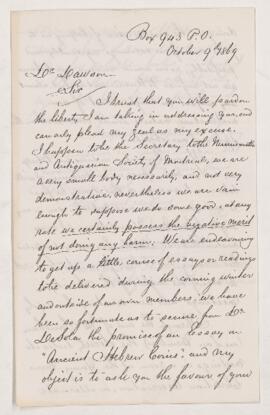 Box 943 P.O.
October 9th 1869
Dr. Dawson
Sir
I trust that you will pardon
the liberty I am taking in addressing you, and
can only plead my zeal as my excuse.
I happen to be the Secretary to the Numismatic
and Antiquarian Society of Montreal, we are
a very small body necessarily, and not very
demonstrative, nevertheless we are vain
enough to suppose we do some good, at any
rate we certainly possess the negative merit
of not doing any harm. We are endeavouring
to get up a little course of essays or readings
to be delivered during the coming winter
and outside of our own members, we have
been so fortunate as to secure from Dr.
DeSola the promise of an Essay on
"Ancient Hebrew Coins", and my
object is to ask you the favour of your